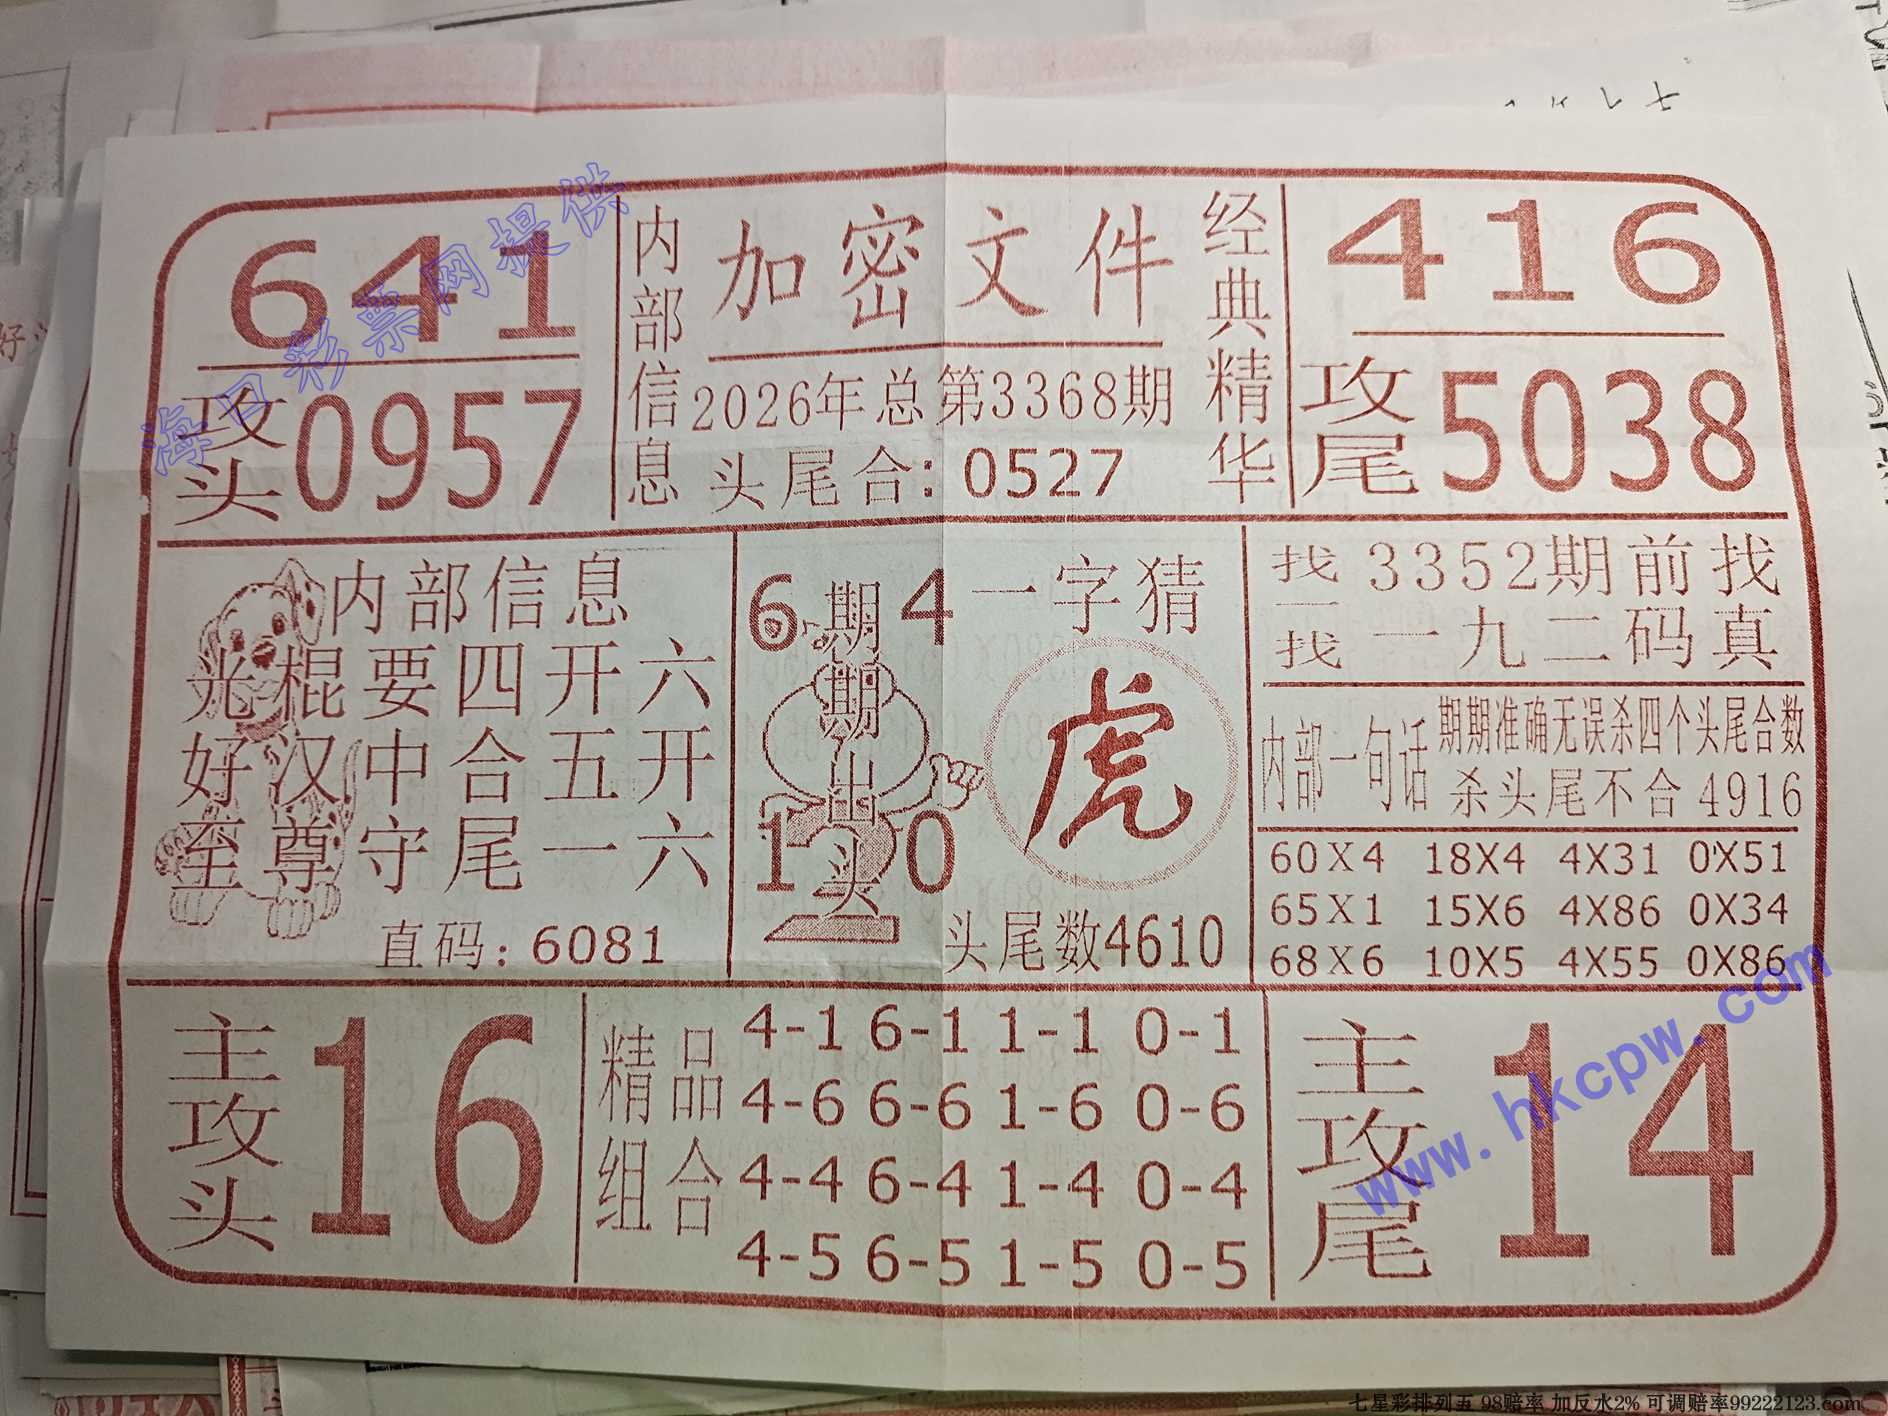 641
攻头 0957
内部信息
加密文件
2026年总第3368期
头尾合：0527
经典精华
416
攻尾 5038
内部信息
光棍要四开六
好汉中合五开
至尊守尾一六
直码：6081
6 4
期期出头
1 0
一字猜
虎
头尾数4610
找一找
3352期前找
一九二码真
内部一句话
期期准确无误杀四个头尾合数
杀头尾不合4916
60X4 18X4 4X31 0X51
65X1 15X6 4X86 0X34
68X6 10X5 4X55 0X86
主攻头
16
精品组合
4-1 6-1 1-1 0-1
4-6 6-6 1-6 0-6
4-4 6-4 1-4 0-4
4-5 6-5 1-5 0-5
主攻尾
14
海口彩票网提供
www.hkcpw.com
七星彩排列五 98赔率 加反水2% 可调赔率99222123.com